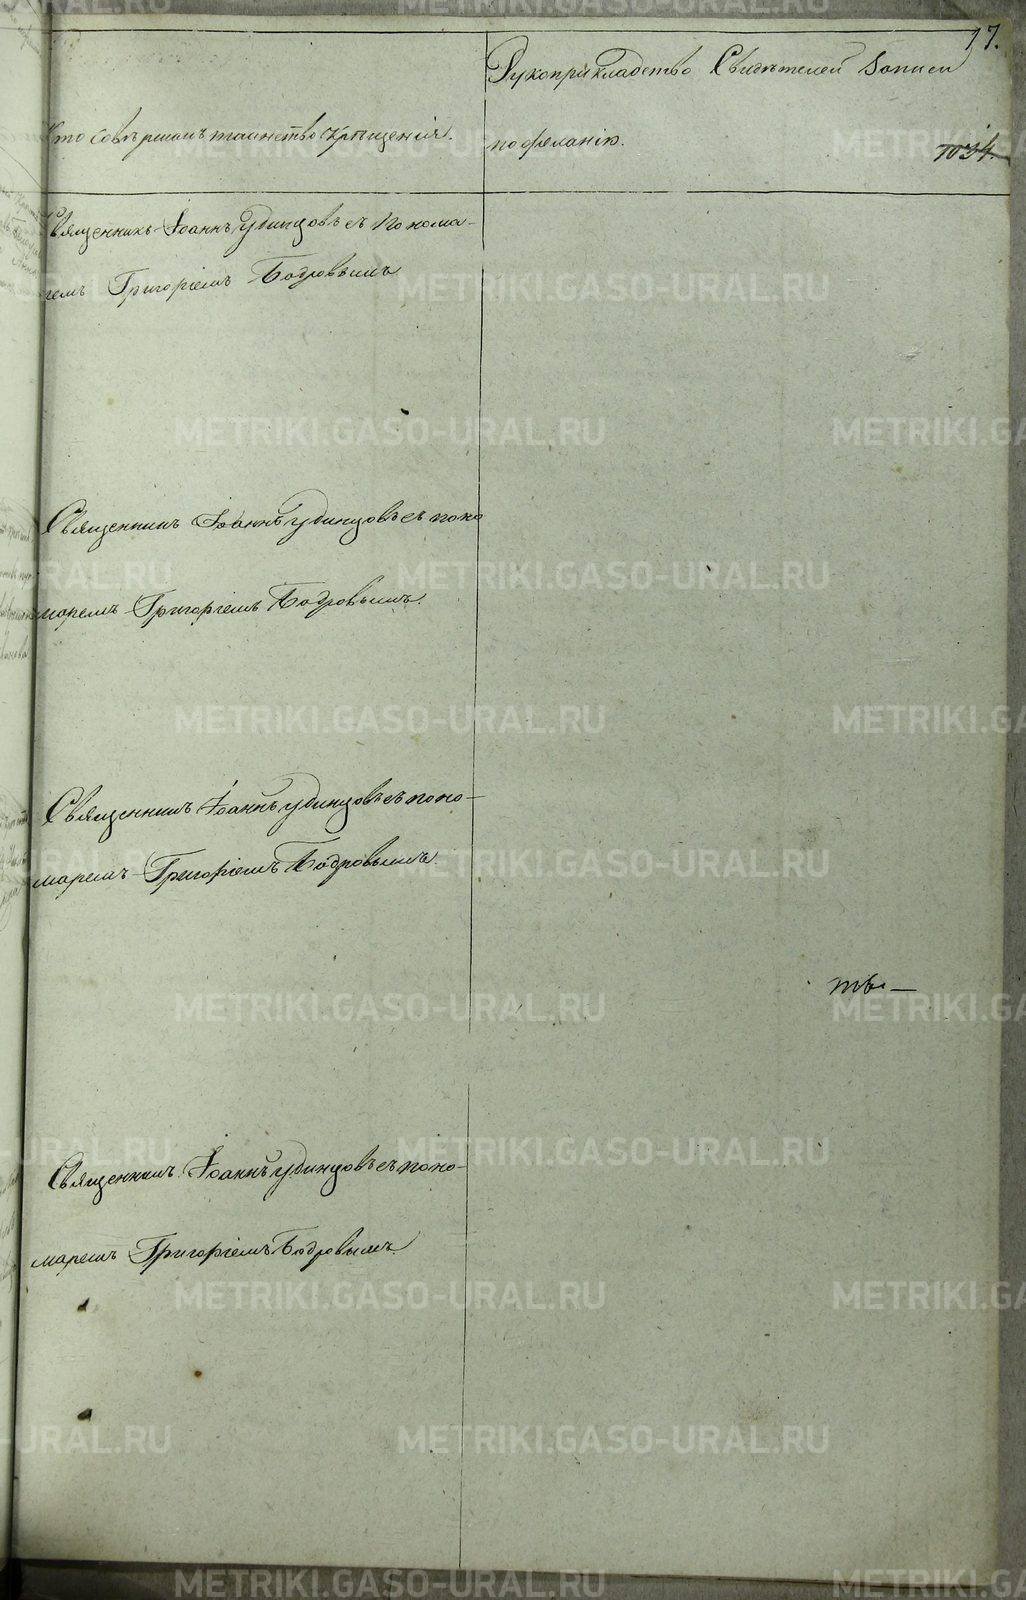 17.
Рукоприкладство Свидѣтелей записи
Кто совершалъ таинство Крещенія.
по желанію.
1034.
Священникъ Іоаннъ Удинцовъ съ понома-
ремъ Григоріемъ Бодровымъ
Священникъ Іоаннъ Удинцовъ съ поно
маремъ Григоріемъ Бодровымъ.
Священникъ Іоаннъ Удинцовъ съ поно-
маремъ Григоріемъ Бодровымъ.
ть.—
Священникъ Іоаннъ Удинцовъ съ поно-
маремъ Григоріемъ Бодровымъ
METRIKI.GASO-URAL.RU